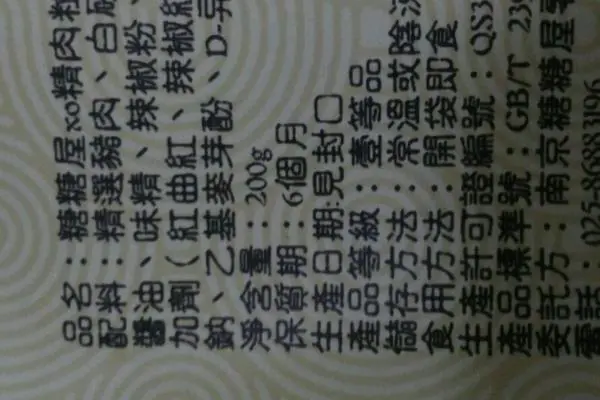 品名：糖糖屋xo精肉粒
配料：精選豬肉、白
醬油、味精、辣椒粉、
加劑（紅曲紅、辣椒紅
鈉、乙基麥芽酚、D-異
淨含量：200g
保質期：6個月
生產日期：見封口
產品等級：壹等品
儲存方法：常溫或陰
食用方法：開袋即食
生產許可證編號：QS3
產品標準號：GB/T 239
委託方：南京糖糖屋
電話：025-86883196